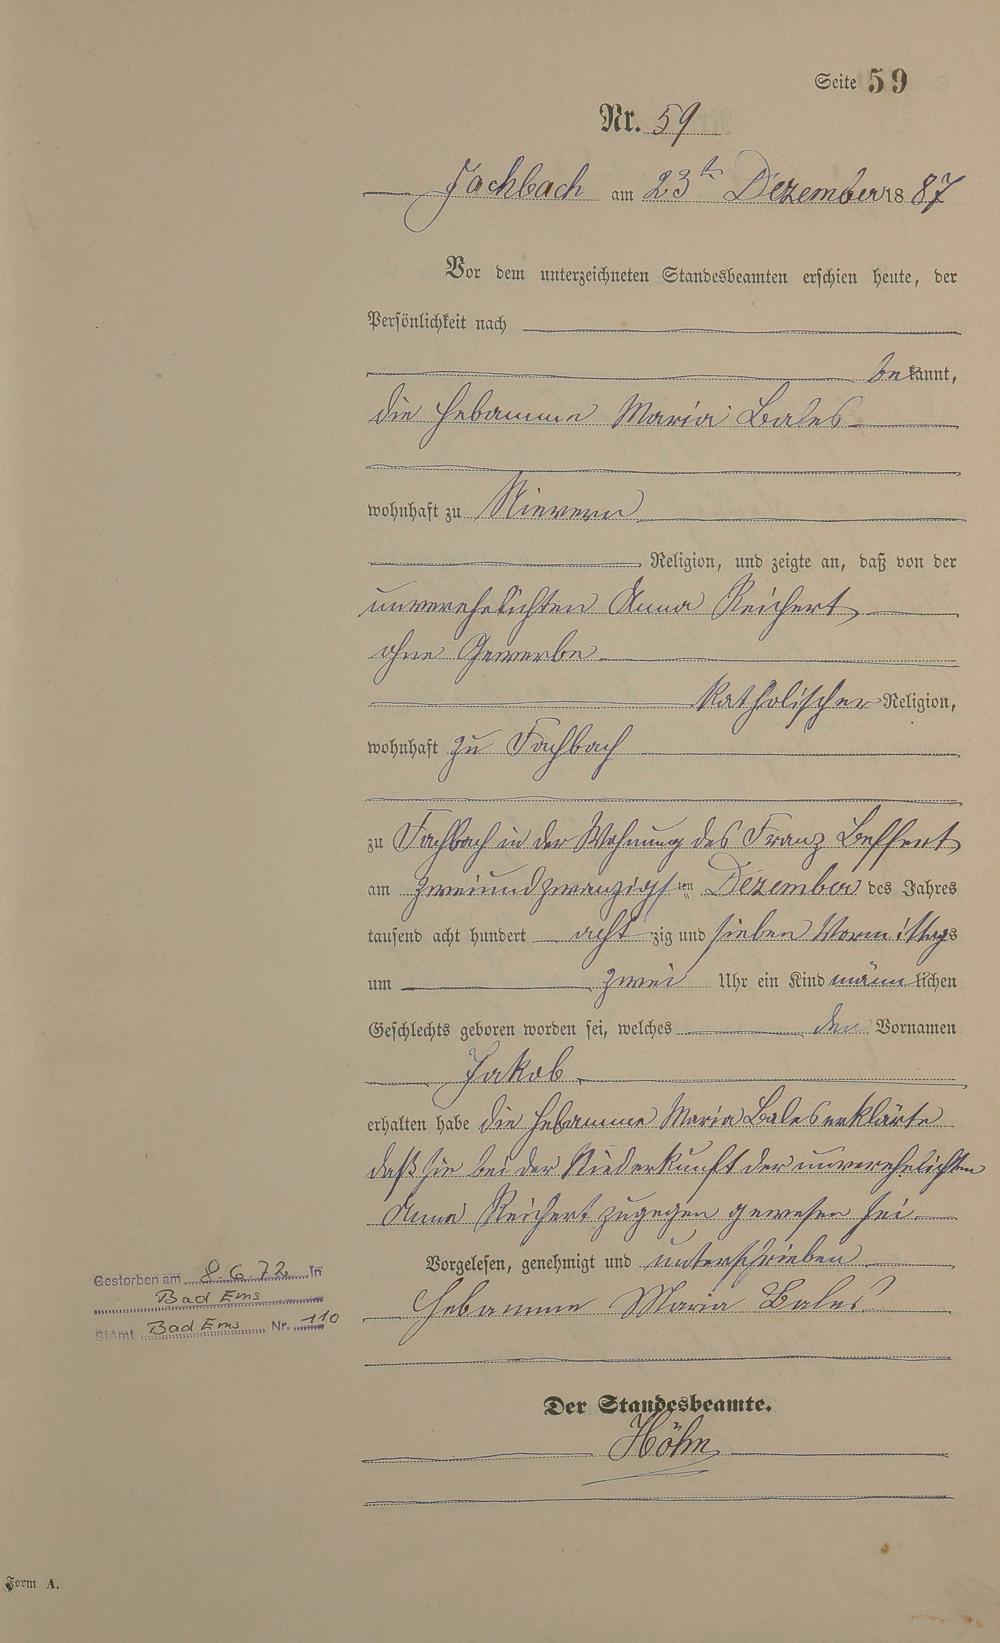 Seite 59
Nr. 59
Fachbach am 23ten Dezember 1887
Vor dem unterzeichneten Standesbeamten erschien heute, der
Persönlichkeit nach
bekannt,
die Hebamme Maria Bales
wohnhaft zu Nievern
Religion, und zeigte an, daß von der
unverehelichten Anna Reichert
ohne Gewerbe
katholischer Religion,
wohnhaft zu Fachbach
zu Fachbach in der Wohnung des Franz
am zweiundzwanzigsten Dezember des Jahres
tausend acht hundert achtzig und sieben Vormittags
um zwei Uhr ein Kind männlichen
Geschlechts geboren worden sei, welches den Vornamen
Jakob
erhalten habe die Hebamme Maria Bales erklärte
daß sie bei der Niederkunft der unverehelichten
Anna Reichert zugegen gewesen sei.
Vorgelesen, genehmigt und unterschrieben
Hebamme Maria Bales
Der Standesbeamte.
Höhn
Gestorben am 8.6.72 in
Bad Ems
StAmt Bad Ems Nr. 110
Form A.